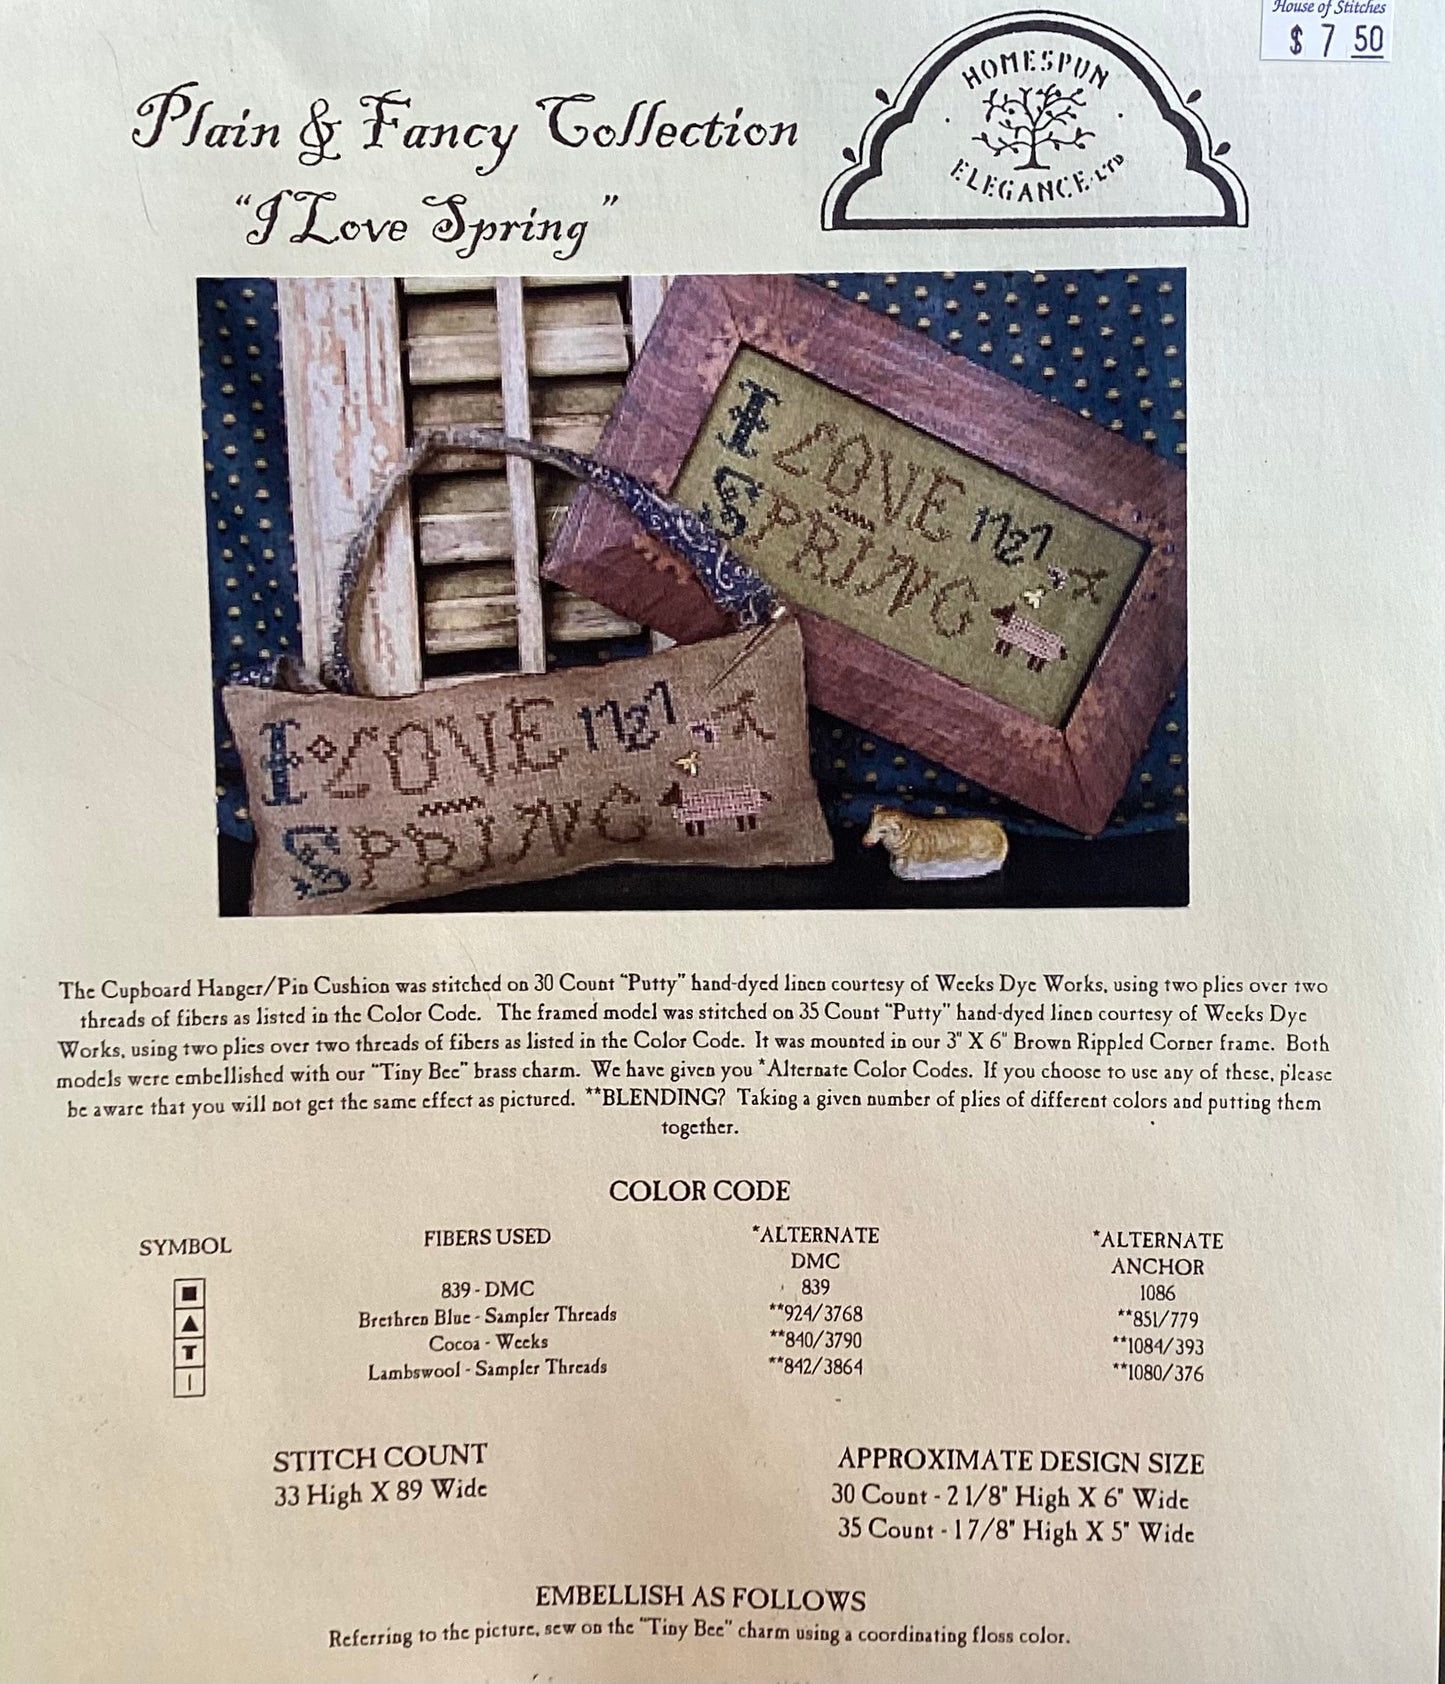 House of Stitches
$ 7 50
HOMESPUN
ELEGANCE LTD
Plain & Fancy Collection
"I Love Spring"
I LOVE 1727
SPRING
I LOVE 1727
SPRING
The Cupboard Hanger/Pin Cushion was stitched on 30 Count "Putty" hand-dyed linen courtesy of Weeks Dye Works, using two plies over two
threads of fibers as listed in the Color Code. The framed model was stitched on 35 Count "Putty" hand-dyed linen courtesy of Weeks Dye
Works, using two plies over two threads of fibers as listed in the Color Code. It was mounted in our 3" X 6" Brown Rippled Corner frame. Both
models were embellished with our "Tiny Bee" brass charm. We have given you *Alternate Color Codes. If you choose to use any of these, please
be aware that you will not get the same effect as pictured. **BLENDING? Taking a given number of plies of different colors and putting them
together.
COLOR CODE
SYMBOL FIBERS USED *ALTERNATE DMC *ALTERNATE ANCHOR
■ 839 - DMC 839 1086
▲ Brethren Blue - Sampler Threads **924/3768 **851/779
T Cocoa - Weeks **840/3790 **1084/393
| Lambswool - Sampler Threads **842/3864 **1080/376
STITCH COUNT
33 High X 89 Wide
APPROXIMATE DESIGN SIZE
30 Count - 2 1/8" High X 6" Wide
35 Count - 1 7/8" High X 5" Wide
EMBELLISH AS FOLLOWS
Referring to the picture, sew on the "Tiny Bee" charm using a coordinating floss color.